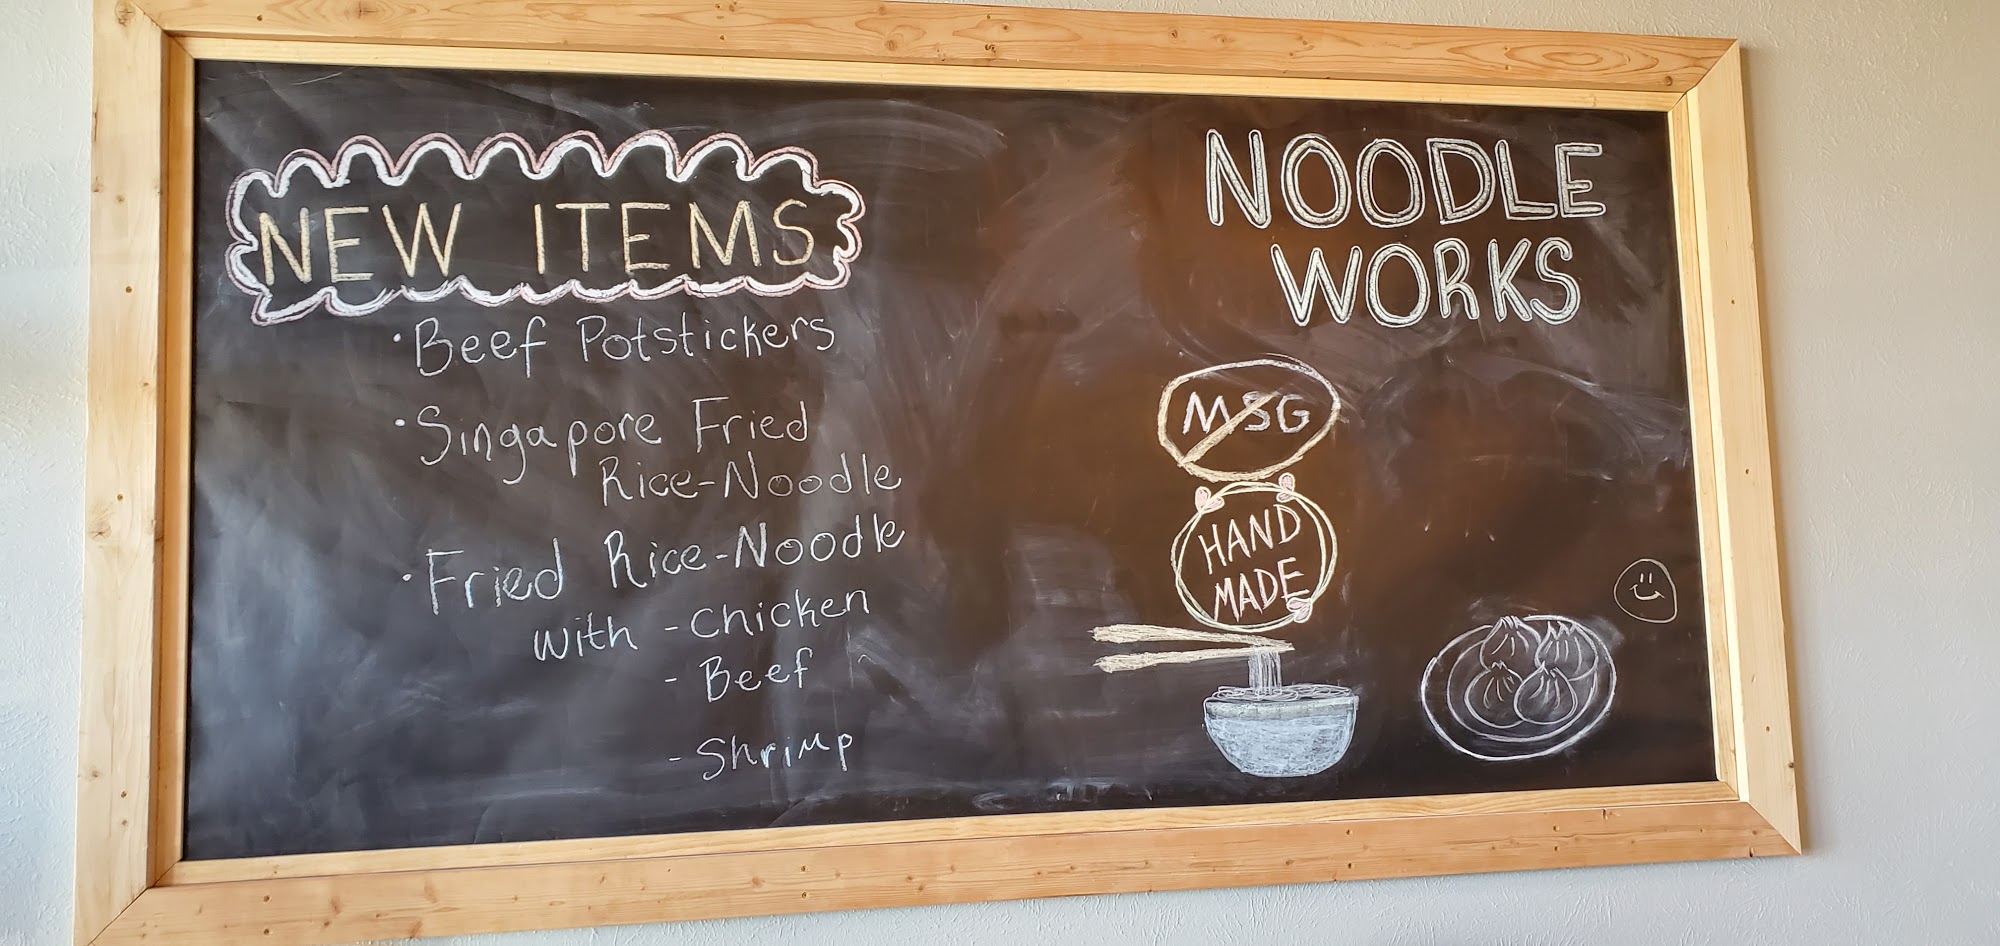 NEW ITEMS
• Beef Potstickers
• Singapore Fried
Rice-Noodle
• Fried Rice-Noodle
with - Chicken
- Beef
- Shrimp
NOODLE
WORKS
MSG
HAND
MADE